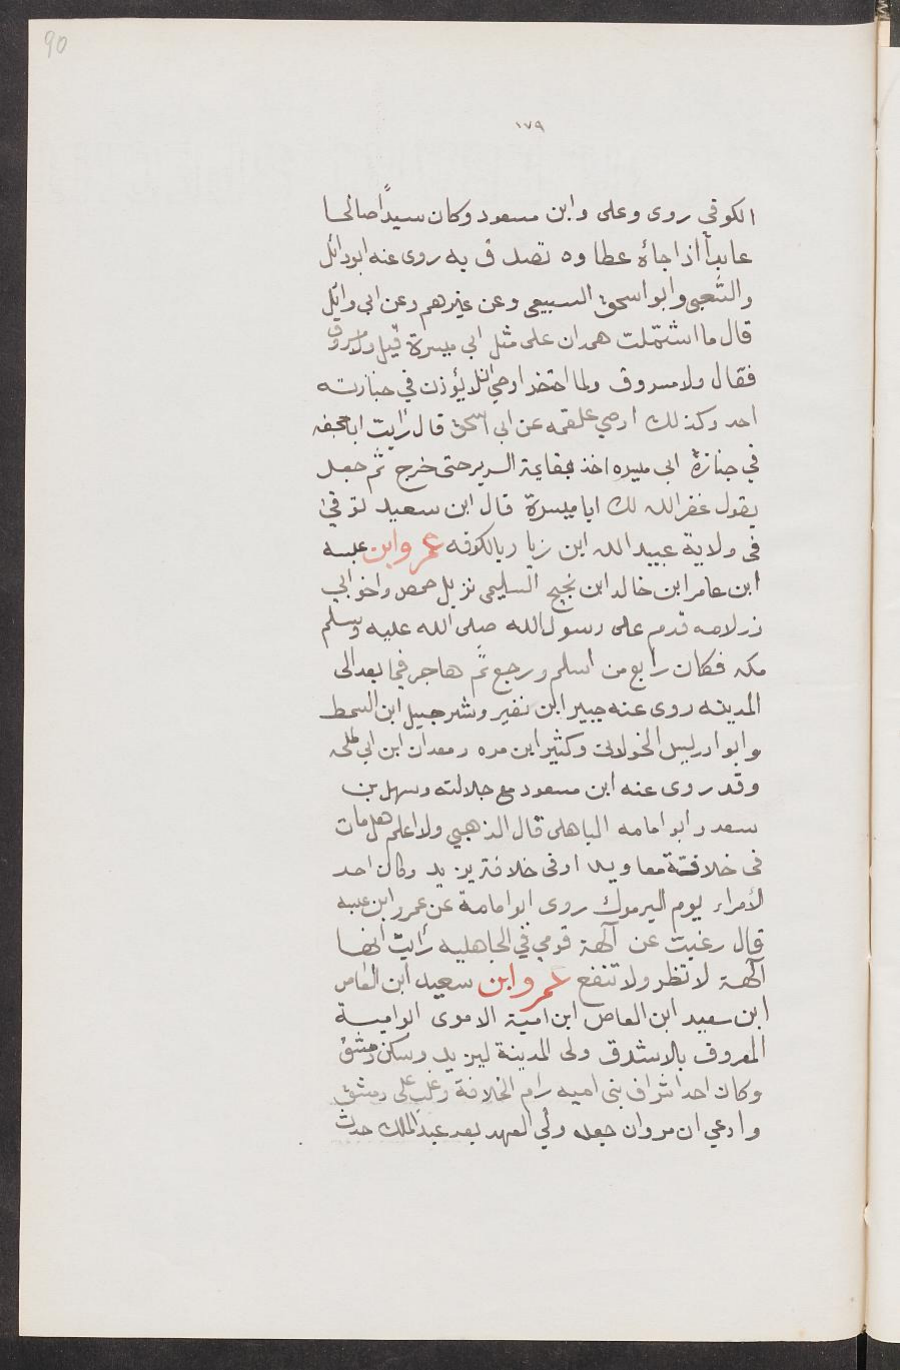 90
١٧٩
الكوفي روى وعلى وابن مسعود وكان سيدًا صالحا
عابداً اذا جاءه عطاوه تصدق به روى عنه ابو وائل
والشعبى وابو اسحق السبيعى وعن غيرهم وعن ابي وائل
قال ما اشتملت همدان على مثل ابي ميسرة قيل ولا مسروق
فقال ولا مسروق ولما احتضر اوصى ان لا يؤذن في جنازته
احد وكذلك اوصي علقمه عن ابي اسحق قال رايت ابا جحفه
في جنازة ابى ميسره اخذ بقايمة السرير حتى خرج ثم جعل
يقول غفر الله لك ابا ميسرة قال ابن سعيد توفي
فى ولاية عبيد الله ابن زيا د بالكوفه عمر وابن عبسه
ابن عامر ابن خالد ابن نجيح السليمى نزيل حمص واخو ابي
ذر لامه قدم على رسول الله صلى الله عليه وسلم
مكه فكان رابع من اسلم ورجع ثم هاجر فيما بعد الى
المدينه روى عنه جبير ابن نفير وشرجبيل ابن السمط
وابو ادريس الخولانى وكثير ابن مره ومعدان ابن ابي طلحه
وقد روى عنه ابن مسعود مع جلالته وسهل بن
سعد وابو امامه الباهلى قال الذهبي ولا اعلم هل مات
فى خلافة معاويه او فى خلافة يزيد وكان احد
الامراء يوم اليرموك روى ابو امامة عن عمر وابن عبسه
قال رغبت عن آلهة قومي في الجاهليه رأيت انها
آلهة لا تظر ولا تنفع عمر وابن سعيد ابن العاص
ابن سعيد ابن العاص ابن امية الاموى ابو امية
المعروف بالاشدق ولى المدينة ليزيد وسكن دمشق
وكان احد اشراف بنى اميه رام الخلافة وغلب على دمشق
وادعي ان مروان جعله ولي العهد بعد عبد الملك حدث